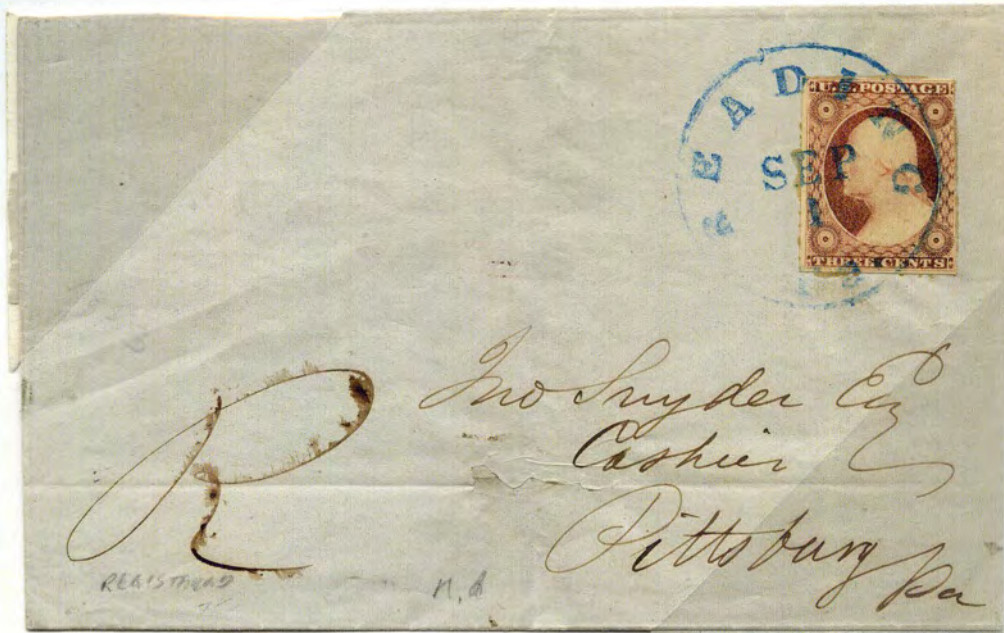 READING
Pa
SEP
1
U.S. POSTAGE
THREE CENTS
Jno Snyder Esq
Cashier
Pittsburg
Pa
R
REGISTERED